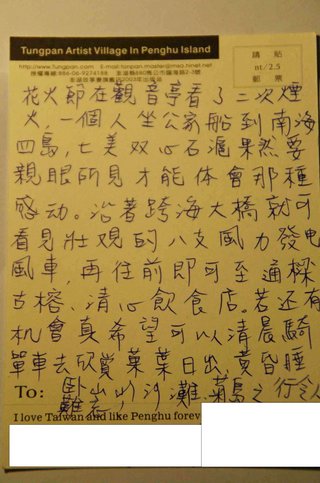 Tungpan Artist Village In Penghu Island
http://www.tungpan.com E-mail:tungpan.master@msa.hinet.net
澎湖縣880馬公市
2003年出版品
請貼
nt/2.5
郵票
花火節在觀音亭看了二次煙
火,一個人坐公家船到南海
四島,七美双心石滬果然要
親眼所見才能体會那種
感动。沿著跨海大橋就可
看見壯观的八支風力發电
風車,再往前即可至通樑
古榕、清心飲食店。若还有
机會真希望可以清晨騎
單車去欣賞菓葉日出,黃昏睡
To: 卧山水沙灘,菊島之行令人
難忘!
I love Taiwan and like Penghu forev